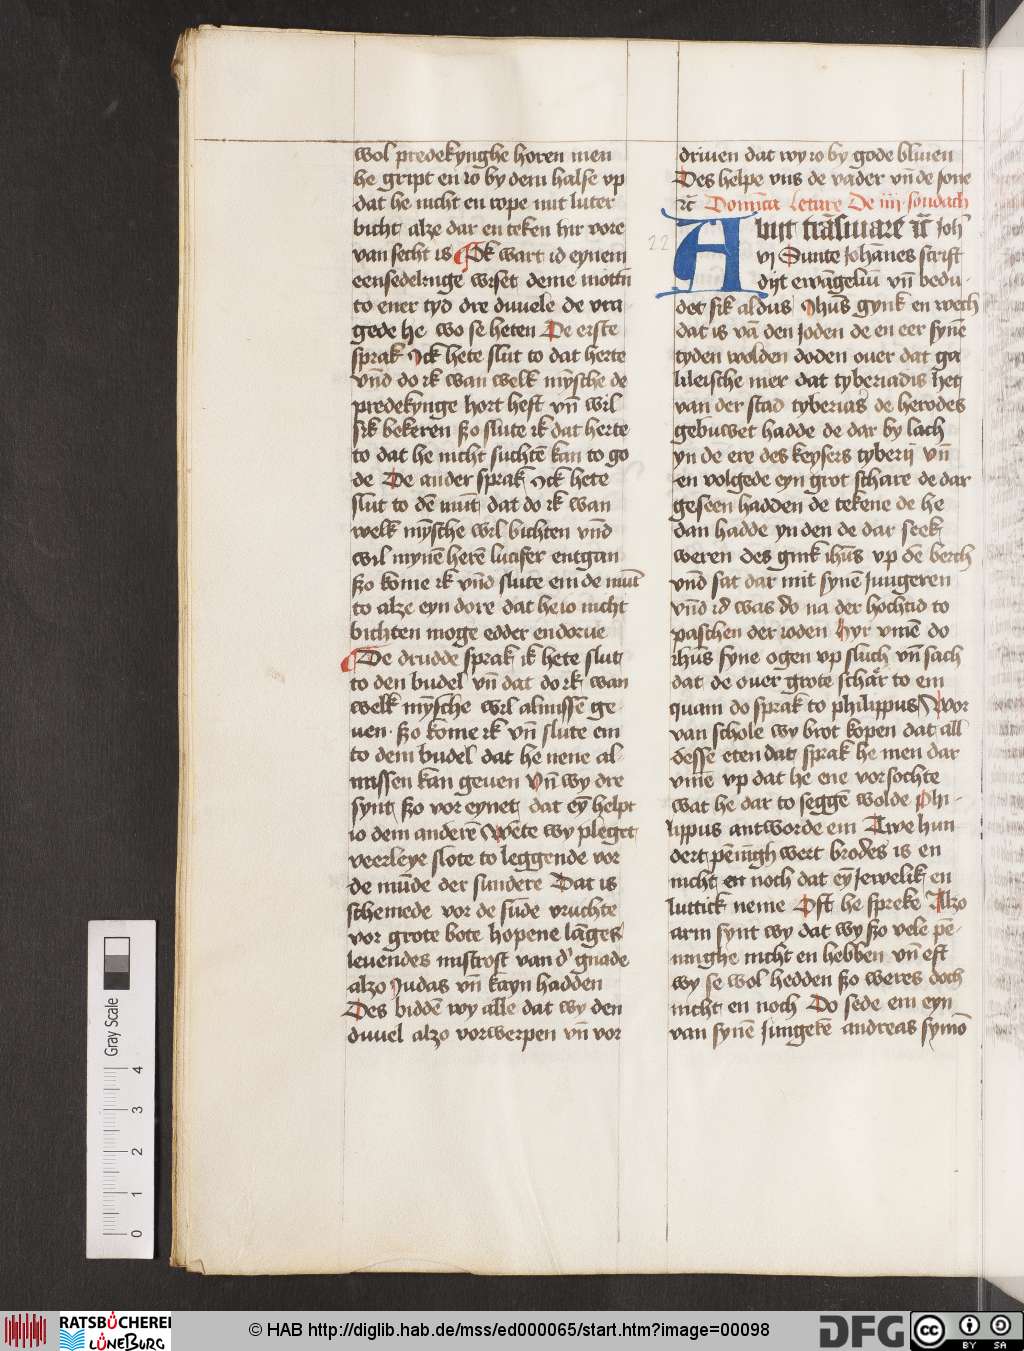 wol predekynghe horen men
he gript en io by dem halse vp
dat he nicht en rope mit luter
bicht alze dar en teken hir vore
van secht is Ok wart id eynem
eensedelinge wiset deme mottn̄
to ener tyd dre duuele de vra
gede he wo se heten De erste
sprak Ick hete slut to dat herte
vn̄d do ik wan welk mȳsche de
predekynge hort heft vn̄ wil
sik bekeren szo slute ik dat herte
to dat he nicht suchtē kan to go
de De ander sprak Ick hete
slut to dē mūt dat do ik wan
welk mȳsche wil bichten vn̄d
wil mynē herē lucifer entgan
szo kome ik vn̄d slute em de mūt
to alze eyn dore dat he io nicht
bichten moge edder en dorue
De drudde sprak ik hete slut
to den budel vn̄ dat do ik wan
welk mȳsche wil almissē ge
uen · szo kome ik vn̄ slute em
to dem budel dat he nene al-
missen kan geuen Vn̄ wy dre
synt szo vor eynet dat eȳ helpt
io dem anderē Wēte wy pleget
veerleye slote to leggende vor
de mūde der sundere Dat is
schemede vor de sūde vruchte
vor grote bote hopene lāges
leuendes mistrost van d' gnade
alzo Iudas vn̄ kayn hadden
Des biddē wy alle dat wy den
duuel alzo vorwerpen vn̄ vor
driuen dat wy io by gode bliuen
Des helpe vns de vader vn̄ de sone
rc Domīca Letare De iiij sondach
22
Abijt trāsmare rc̄ Joh'
vj Sunte Johānes scrift
dijt ewāgeliū vn̄ bedu-
det sik aldus Ihūs gynk en wech
dat is vā den Joden de en eer synē
tyden wolden doden ouer dat ga
lileische mer dat tyberiadis het
van der stad tyberias de herodes
gebuwet hadde de dar by lach
yn de ere des keysers tyberij vn̄
en volgede eyn grot schare de dar
geseen hadden de tekene de he
dan hadde yn den de dar seek
weren des gink ihūs vp dē berch
vn̄d sat dar mit synē Jungeren
vn̄d id was do na der hochtid to
paschen der ioden Hyr vmē do
ihūs syne ogen vp sluch vn̄ sach
dat de ouer grote schar to em
quam do sprak to philippus Wor
van schole wy brot kopen dat all
desse eten dat sprak he men dar
vmē vp dat he ene vorsochte
wat he dar to seggē wolde Phi-
lippus antworde em Twe hun
dert pēnigh wert brodes is en
nicht en noch dat eȳ Jewelik en
luttick neme Oft he spreke Alzo
arm synt wy dat wy szo vele pē-
ninghe nicht en hebben vn̄ eft
wy se wol hedden szo weres doch
nicht en noch Do sede em eyn
van synē Jungekē andreas symō
Gray Scale
4
3
2
1
0
RATSBÜCHEREI
LÜNEBURG
© HAB http://diglib.hab.de/mss/ed000065/start.htm?image=00098
DFG
cc
BY SA